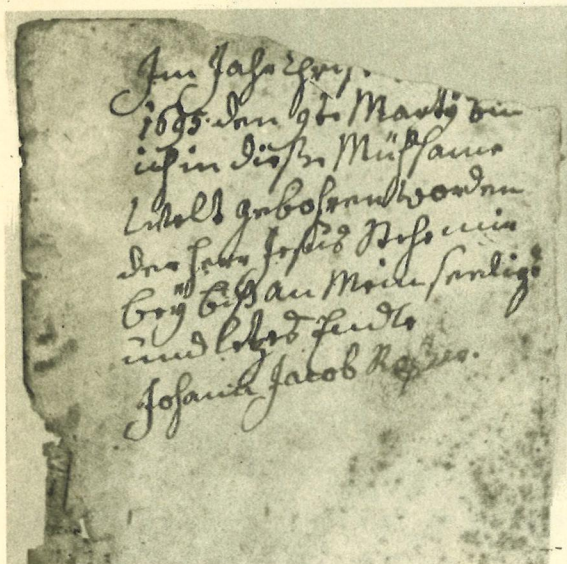 Im Jahr Chris
1695 den 9te Marty bin
ich in diese Mühsame
Welt gebohren worden
der herr Jesus Stehe mir
beÿ biß an Mein seeligs
und letzes Endte
Johann Jacob